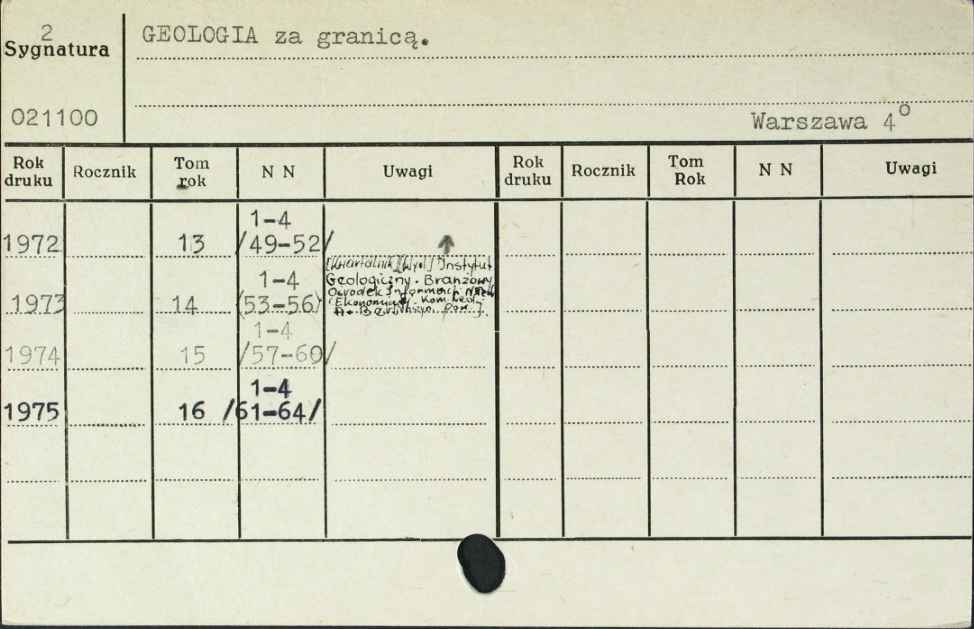 2
Sygnatura
GEOLOGIA za granicą.
021100
Warszawa 4°
Rok druku Rocznik Tom rok N N Uwagi Rok druku Rocznik Tom Rok N N Uwagi
1-4
1972 13 /49-52/
[Kwartalnik] [Wyd.] Instytut
1-4 Geologiczny. Branżowy
Ośrodek Informacji
1973 14 (53-56) Ekonomicznej. Kom. Red.
1-4
1974 15 /57-60/
1-4
1975 16 /61-64/